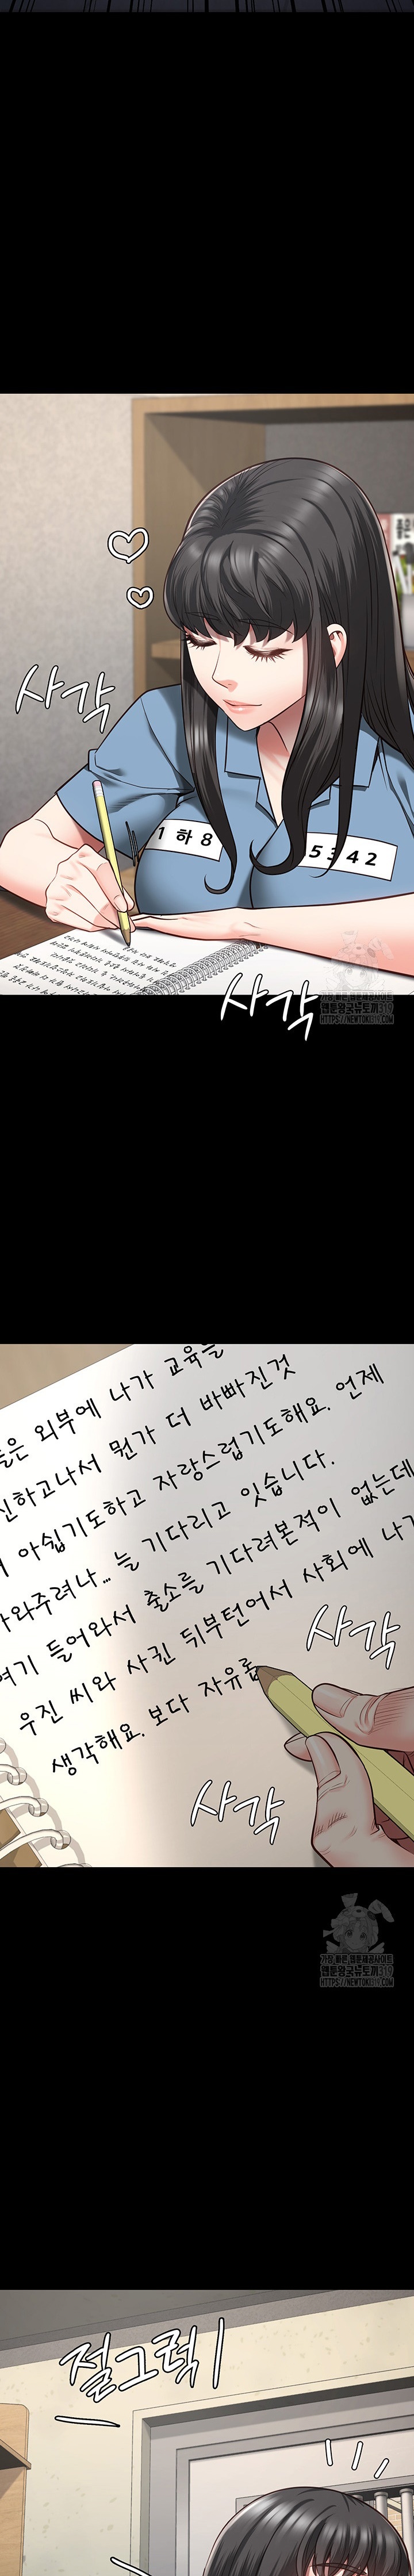 사각
1하8
5342
사각
가장 빠른 웹툰제공사이트
웹툰왕국뉴토끼319
HTTPS://NEWTOKI319.COM
들은 외부에 나가 교육을
신하고나서 뭔가 더 바빠진것
아쉽기도하고 자랑스럽기도해요. 언제
와주려나... 늘 기다리고 있습니다.
여기 들어와서 출소를 기다려본적이 없는데
우진 씨와 사귄 뒤부턴어서 사회에 나가
생각해요. 보다 자유롭
사각
사각
가장 빠른 웹툰제공사이트
웹툰왕국뉴토끼319
HTTPS://NEWTOKI319.COM
절그럭